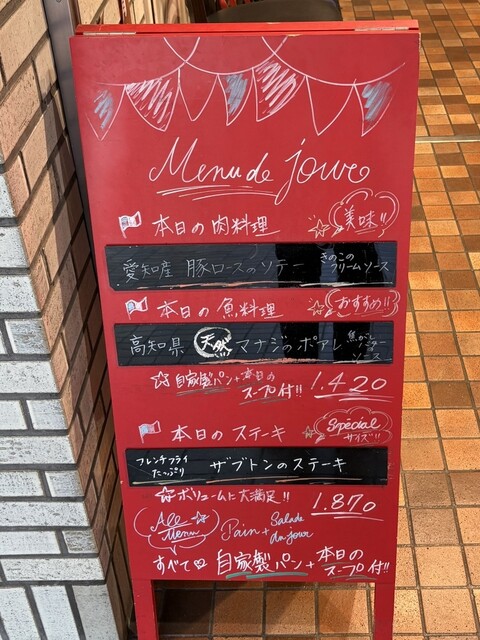 Menu de jour
本日の肉料理 美味!!
愛知産 豚ロースのソテー きのこの
クリームソース
本日の魚料理 おすすめ!!
高知県 天然 マナジのポアレ 焦がし
ソース
☆自家製パン+本日の
スープ付!! 1.420
本日のステーキ Special
サイズ!!
フレンチフライ
たっぷり ザブトンのステーキ
☆ボリュームに大満足!! 1.870
All
Menu Pain + Salade
du jour
すべて♡ 自家製パン+本日の
スープ付!!